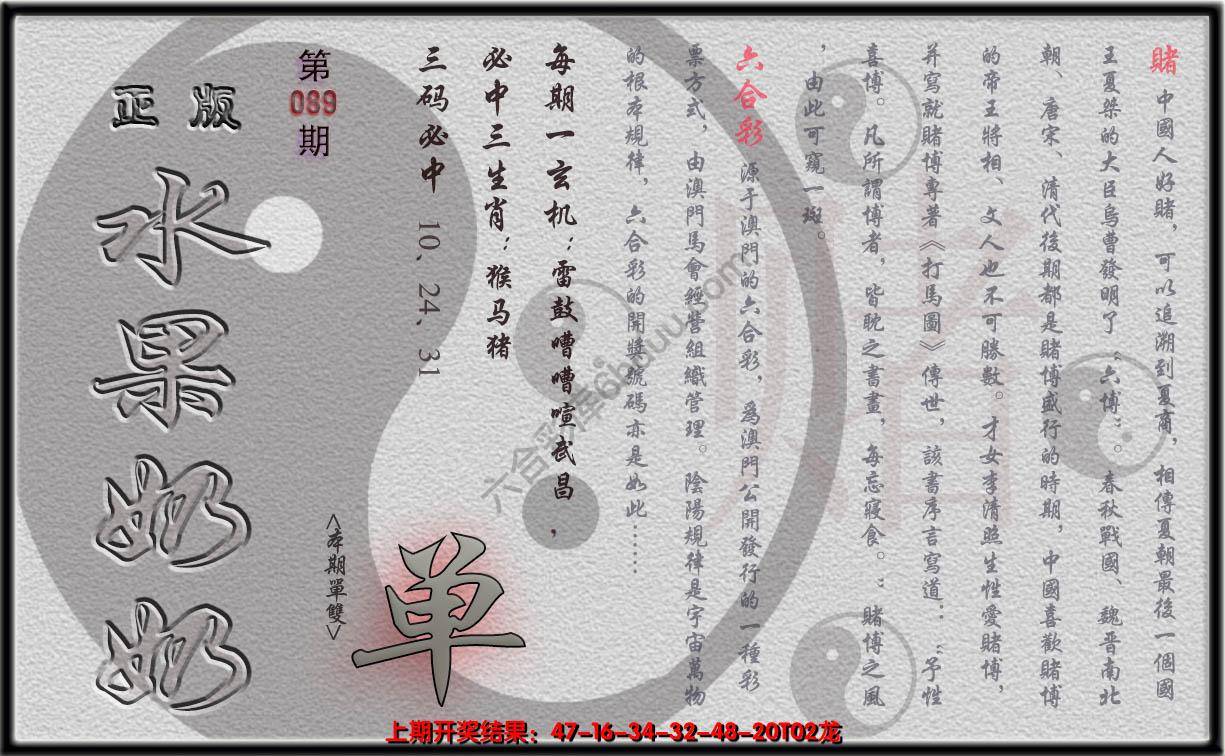 賭 中國人好賭，可以追溯到夏商，相傳夏朝最後一個國
王夏桀的大臣烏曹發明了“六博”。春秋戰國、魏晋南北
朝、唐宋、清代後期都是賭博盛行的時期，中國喜歡賭博
的帝王將相、文人也不可勝數。才女李清照生性愛賭博，
并寫就賭博專著《打馬圖》傳世，該書序言寫道：“予性
喜博。凡所謂博者，皆耽之書畫，每忘寢食。”賭博之風
，由此可窺一斑。
六合彩 源于澳門的六合彩，為澳門公開發行的一種彩
票方式，由澳門馬會經營組織管理。陰陽規律是宇宙萬物
的根本規律，六合彩的開獎號碼亦是如此……
每期一玄机：雷鼓嘈嘈喧武昌，
必中三生肖：猴马猪
三码必中 10、24、31
第089期
正版
水果奶奶
<本期單雙>
单
上期开奖结果：47-16-34-32-48-20T02龙